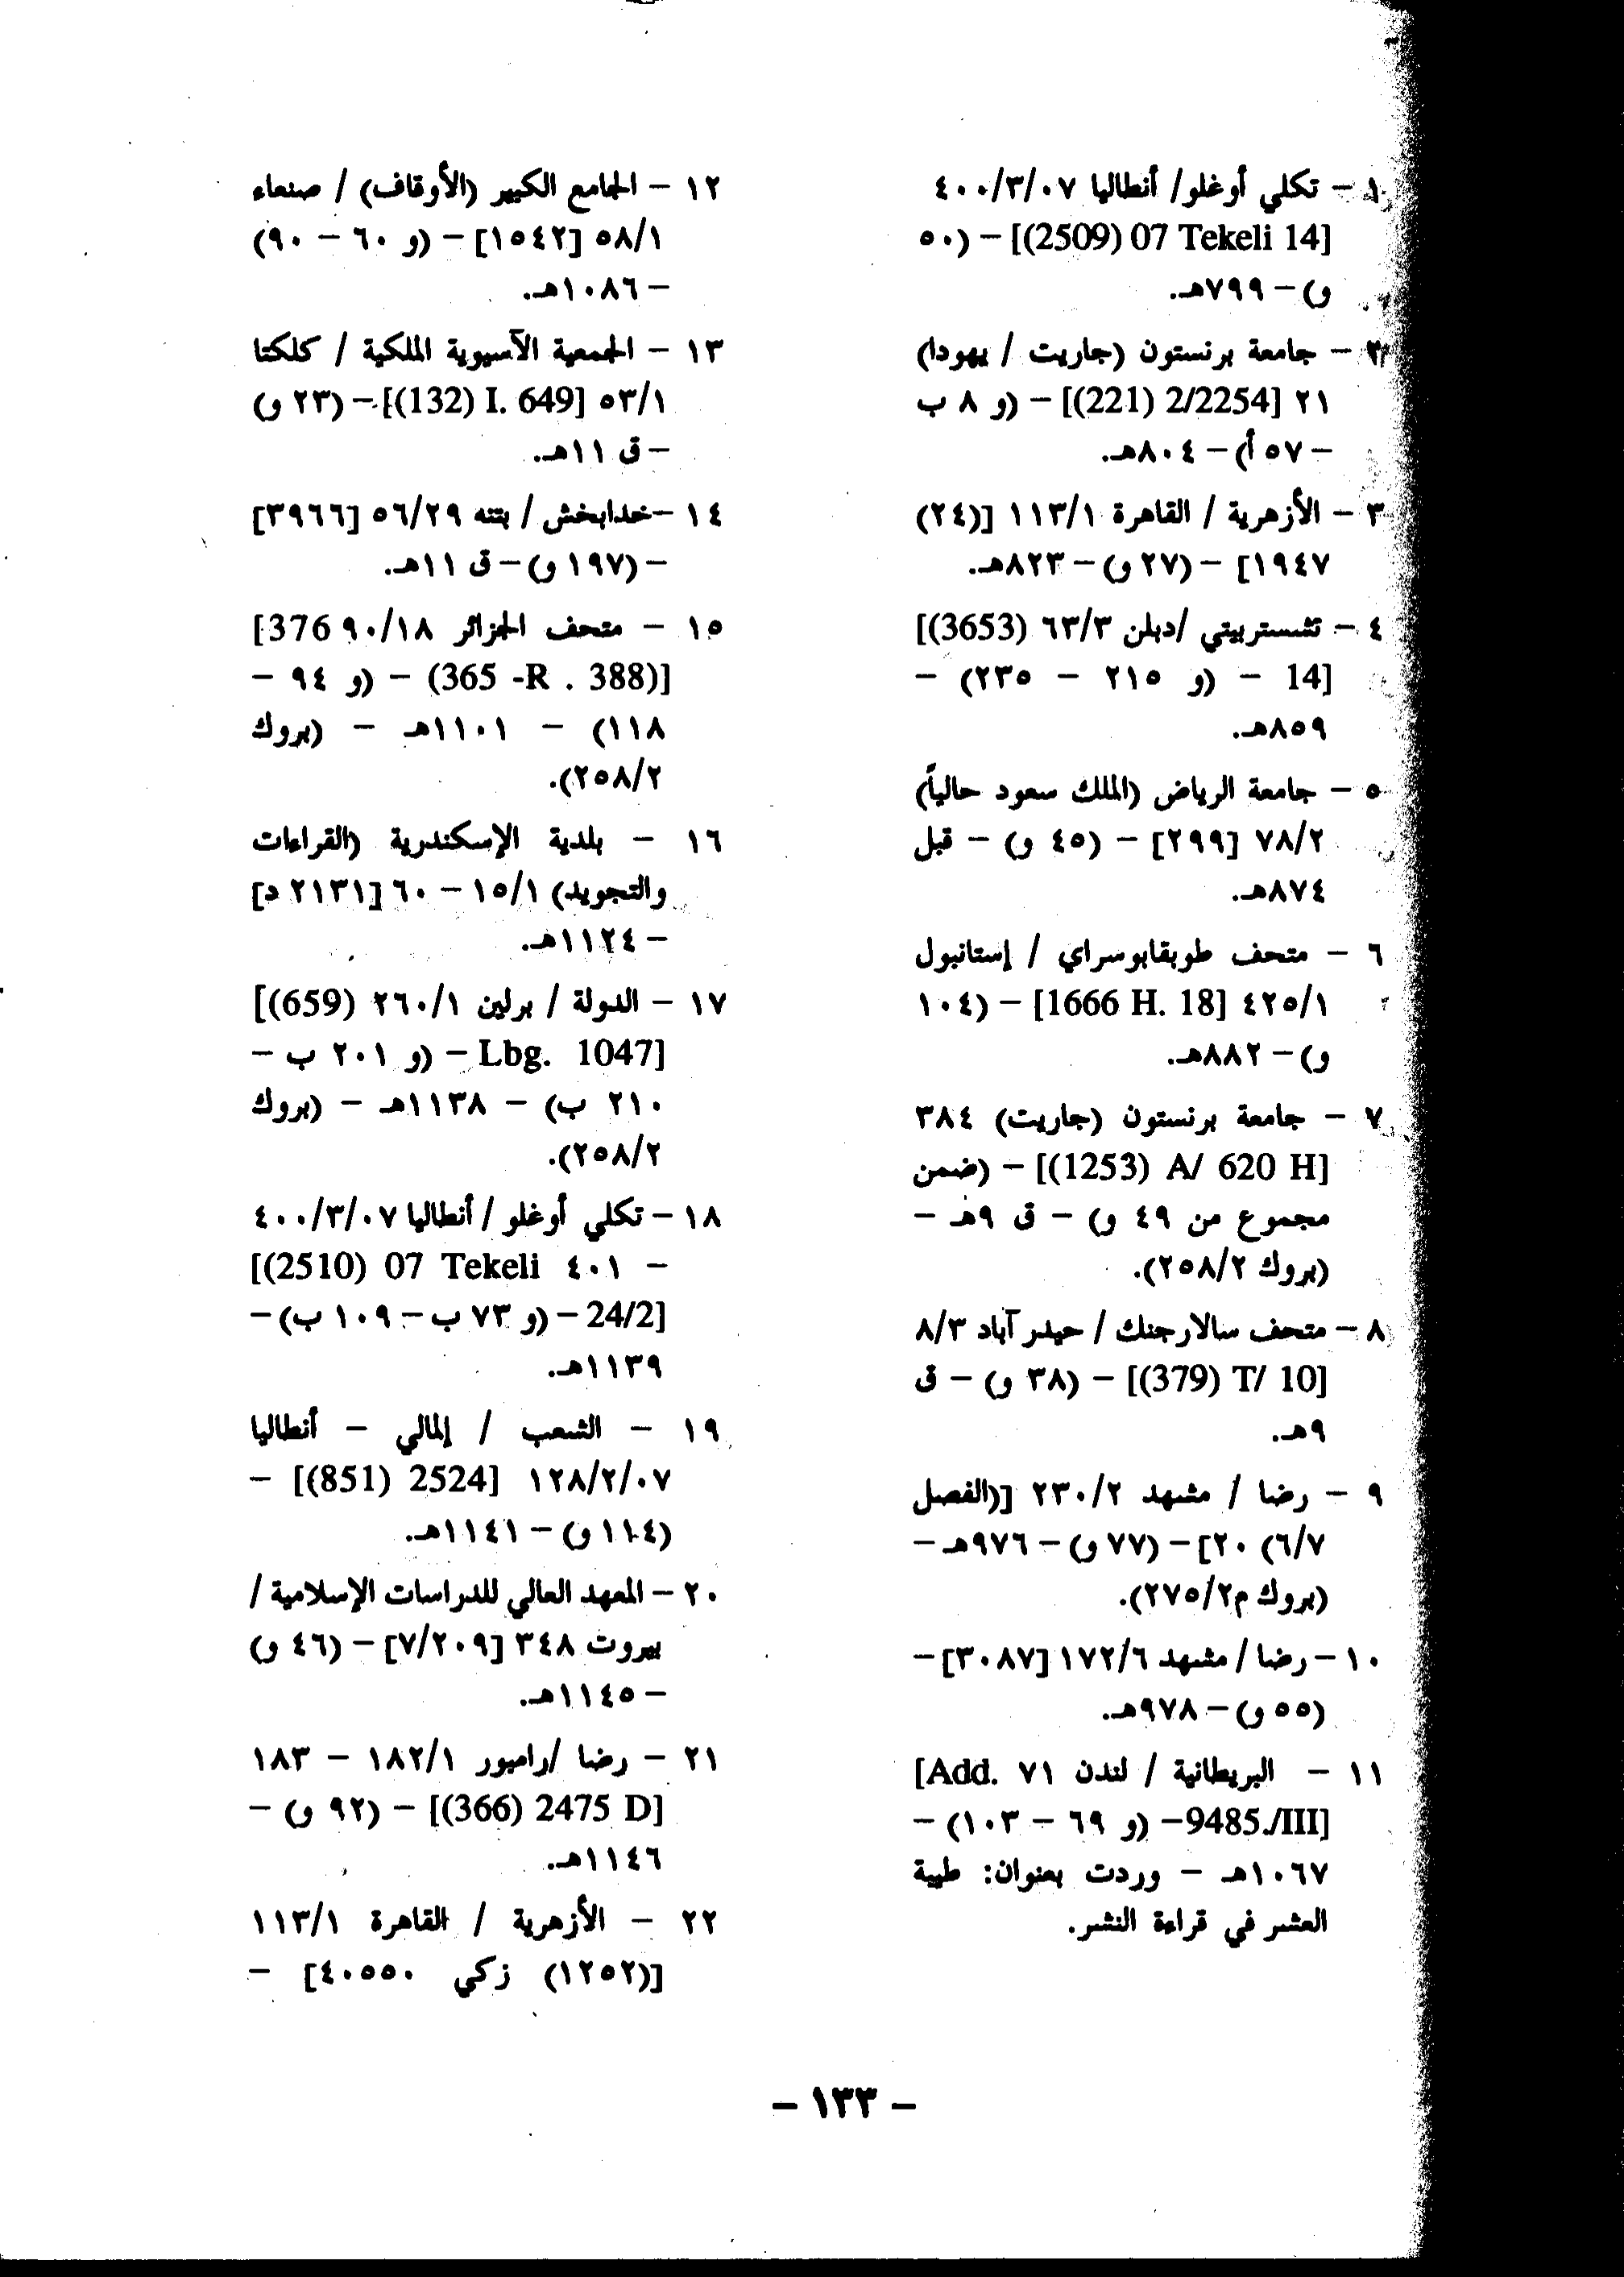 ١ – تكلي أوغلو/ أنطاليا ٤٠٠/٣/٠٧
[(2509) 07 Tekeli 14] – (٥٠
و) – ٧٩٩هـ.
٢ – جامعة برنستون (جاريت / يهودا)
٢١ [(221) 2/2254] – (و ٨ ب
– ٥٧ أ) – ٨٠٤هـ.
٣ – الأزهرية / القاهرة ١١٣/١ [(٢٤)
١٩٤٧] – (٢٧ و) – ٨٢٣هـ.
٤ – تشستربيتي /دبلن ٦٣/٣ [(3653)
14] – (و ٢١٥ – ٢٣٥) –
٨٥٩هـ.
٥ – جامعة الرياض (الملك سعود حالياً)
٧٨/٢ [٢٩٩] – (٤٥ و) – قبل
٨٧٤هـ.
٦ – متحف طوبقابوسراي / إستانبول
٤٢٥/١ [1666 H. 18] – (١٠٤
و) – ٨٨٢هـ.
٧ – جامعة برنستون (جاريت) ٣٨٤
[(1253) A/ 620 H] – (ضمن
مجموع من ٤٩ و) – ق ٩هـ –
(بروك ٢٥٨/٢).
٨ – متحف سالارجنك / حيدر آباد ٨/٣
[(379) T/ 10] – (٣٨ و) – ق
٩هـ.
٩ – رضا / مشهد ٢٣٠/٢ [(الفصل
٦/٧) ٢٠] – (٧٧ و) – ٩٧٦هـ –
(بروك م٢٧٥/٢).
١٠ – رضا / مشهد ١٧٢/٦ [٣٠٨٧] –
(٥٥ و) – ٩٧٨هـ.
١١ – البريطانية / لندن ٧١ [Add.
9485./III] – (و ٦٩ – ١٠٣) –
١٠٦٧هـ – وردت بعنوان: طيبة
العشر في قراءة النشر.
١٢ – الجامع الكبير (الأوقاف) / صنعاء
٥٨/١ [١٥٤٢] – (و ٦٠ – ٩٠)
– ١٠٨٦هـ.
١٣ – الجمعية الآسيوية الملكية / كلكتا
٥٣/١ [(132) I. 649] – (٢٣ و)
– ق ١١هـ.
١٤ – خدابخش / بتنه ٥٦/٢٩ [٣٩٦٦]
– (١٩٧ و) – ق ١١هـ.
١٥ – متحف الجزائر ٩٠/١٨ [376
(365 -R . 388)] – (و ٩٤ –
١١٨) – ١١٠١هـ – (بروك
٢٥٨/٢).
١٦ – بلدية الإسكندرية (القراءات
والتجويد) ١٥/١ – ٦٠ [٢١٣١ د]
– ١١٢٤هـ.
١٧ – الدولة / برلين ٢٦٠/١ [(659)
Lbg. 1047] – (و ٢٠١ ب –
٢١٠ ب) – ١١٣٨هـ – (بروك
٢٥٨/٢).
١٨ – تكلي أوغلو / أنطاليا ٤٠٠/٣/٠٧
– ٤٠١ [(2510) 07 Tekeli
24/2] – (و ٧٣ ب – ١٠٩ ب) –
١١٣٩هـ.
١٩ – الشعب / إلمالي – أنطاليا
١٢٨/٢/٠٧ [(851) 2524] –
(١١٤ و) – ١١٤١هـ.
٢٠ – المعهد العالي للدراسات الإسلامية /
بيروت ٣٤٨ [٧/٢٠٩] – (٤٦ و)
– ١١٤٥هـ.
٢١ – رضا /رامبور ١٨٢/١ – ١٨٣
[(366) 2475 D] – (٩٢ و) –
١١٤٦هـ.
٢٢ – الأزهرية / القاهرة ١١٣/١
[(١٢٥٢) زكي ٤٠٥٥٠] –
– ١٣٣ –